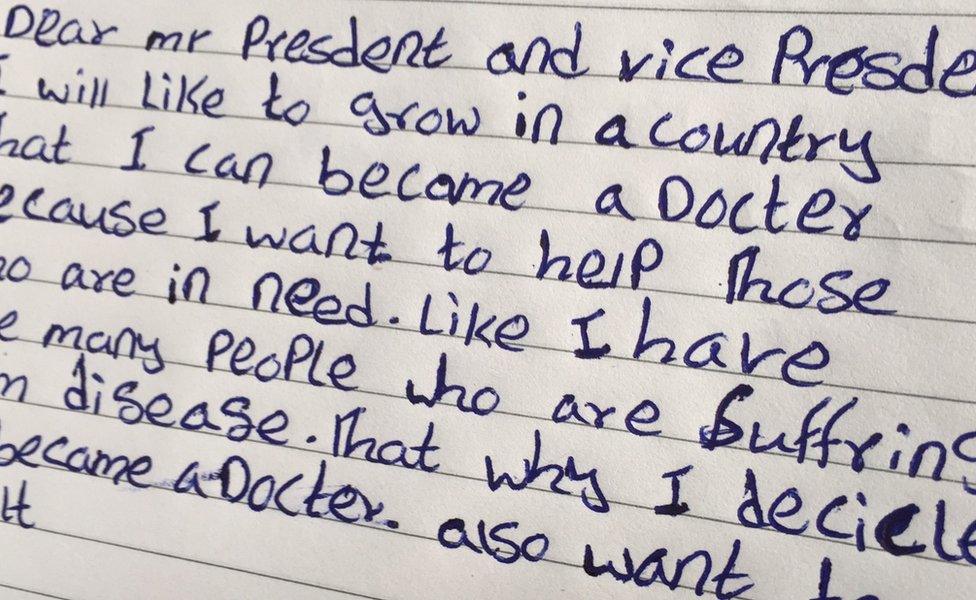 Dear mr Presdent and vice Presde
I will Like to grow in a country
hat I can become a Docter
ecause I want to help Those
o are in need. Like I have
e many People who are Suffring
n disease. That why I decide
became a Docter. also want to
lt